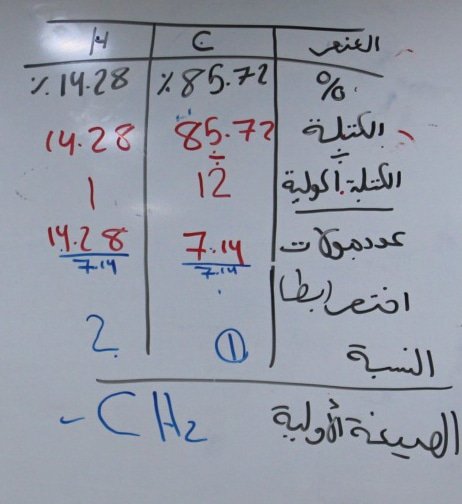 العنصر C H
% %85.72 %14.28
الكتلة 85.72 14.28
÷ ÷
الكتلة المولية 12 1
عدد مولات 7.14 14.28
7.14 7.14
اختصر ابسط
النسبة 1 2
الصيغة الأولية CH2